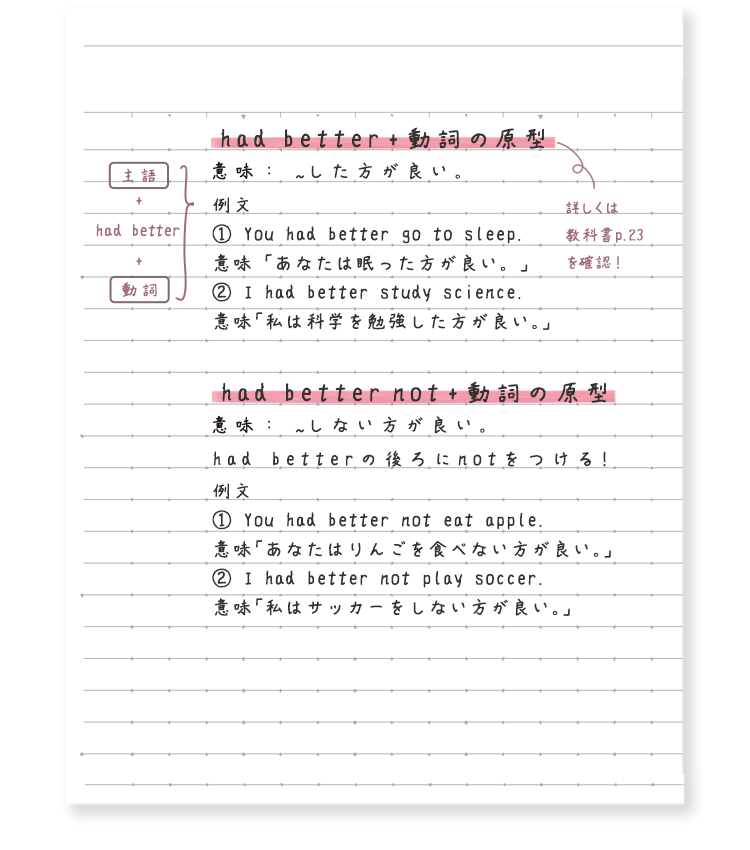 had better+動詞の原型
意味： ~した方が良い。
例文
① You had better go to sleep.
意味「あなたは眠った方が良い。」
② I had better study science.
意味「私は科学を勉強した方が良い。」
主語
+
had better
+
動詞
詳しくは
教科書p.23
を確認！
had better not+動詞の原型
意味： ~しない方が良い。
had betterの後ろにnotをつける！
例文
① You had better not eat apple.
意味「あなたはりんごを食べない方が良い。」
② I had better not play soccer.
意味「私はサッカーをしない方が良い。」